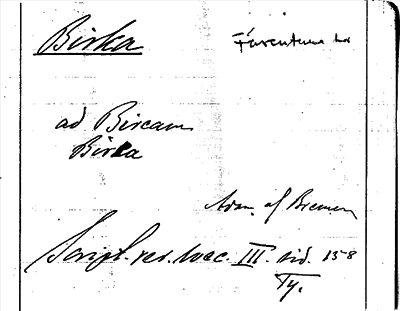 Birka
Färentuna hd
ad Bircam
Birka
Adam af Bremen
Script. rer. svec. III. sid. 158
Ty.